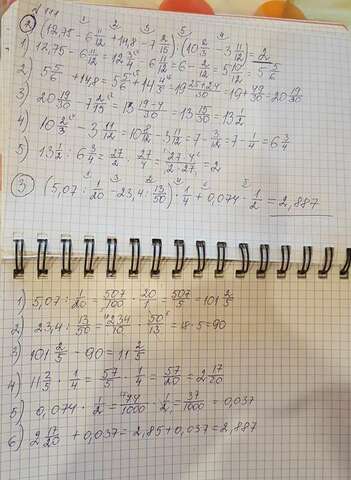 № 111
2) (12,75 - 6 11/12 + 14,8 - 7 2/15) : (10 2/3 - 3 11/12) = 2
1) 12,75 - 6 11/12 = 12 3/4 - 6 11/12 = 6 - 2/12 = 5 10/12 = 5 5/6
2) 5 5/6 + 14,8 = 5 5/6 + 14 4/5 = 19 25+24/30 = 19 + 49/30 = 20 19/30
3) 20 19/30 - 7 2/15 = 13 19-4/30 = 13 15/30 = 13 1/2
4) 10 2/3 - 3 11/12 = 10 8/12 - 3 11/12 = 7 - 3/12 = 7 - 1/4 = 6 3/4
5) 13 1/2 : 6 3/4 = 27/2 : 27/4 = 27·4/2·27 = 2
3) (5,07 : 1/20 - 23,4 : 13/50) · 1/4 + 0,074 · 1/2 = 2,887
1) 5,07 : 1/20 = 507/100 · 20/1 = 507/5 = 101 2/5
2) 23,4 : 13/50 = 234/10 · 50/13 = 18·5 = 90
3) 101 2/5 - 90 = 11 2/5
4) 11 2/5 · 1/4 = 57/5 · 1/4 = 57/20 = 2 17/20
5) 0,074 · 1/2 = 74/1000 · 1/2 = 37/1000 = 0,037
6) 2 17/20 + 0,037 = 2,85 + 0,037 = 2,887